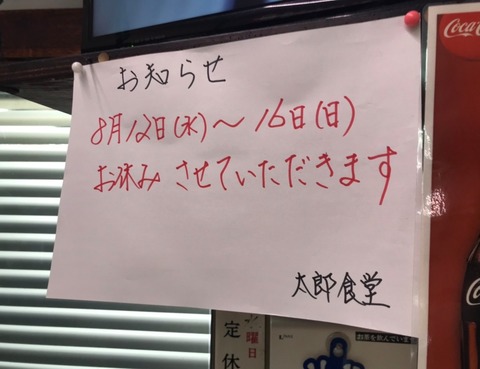 お知らせ
8月12日(水)～16日(日)
お休みさせていただきます
太郎食堂
曜日
定休
お茶を飲んでいま
Coca